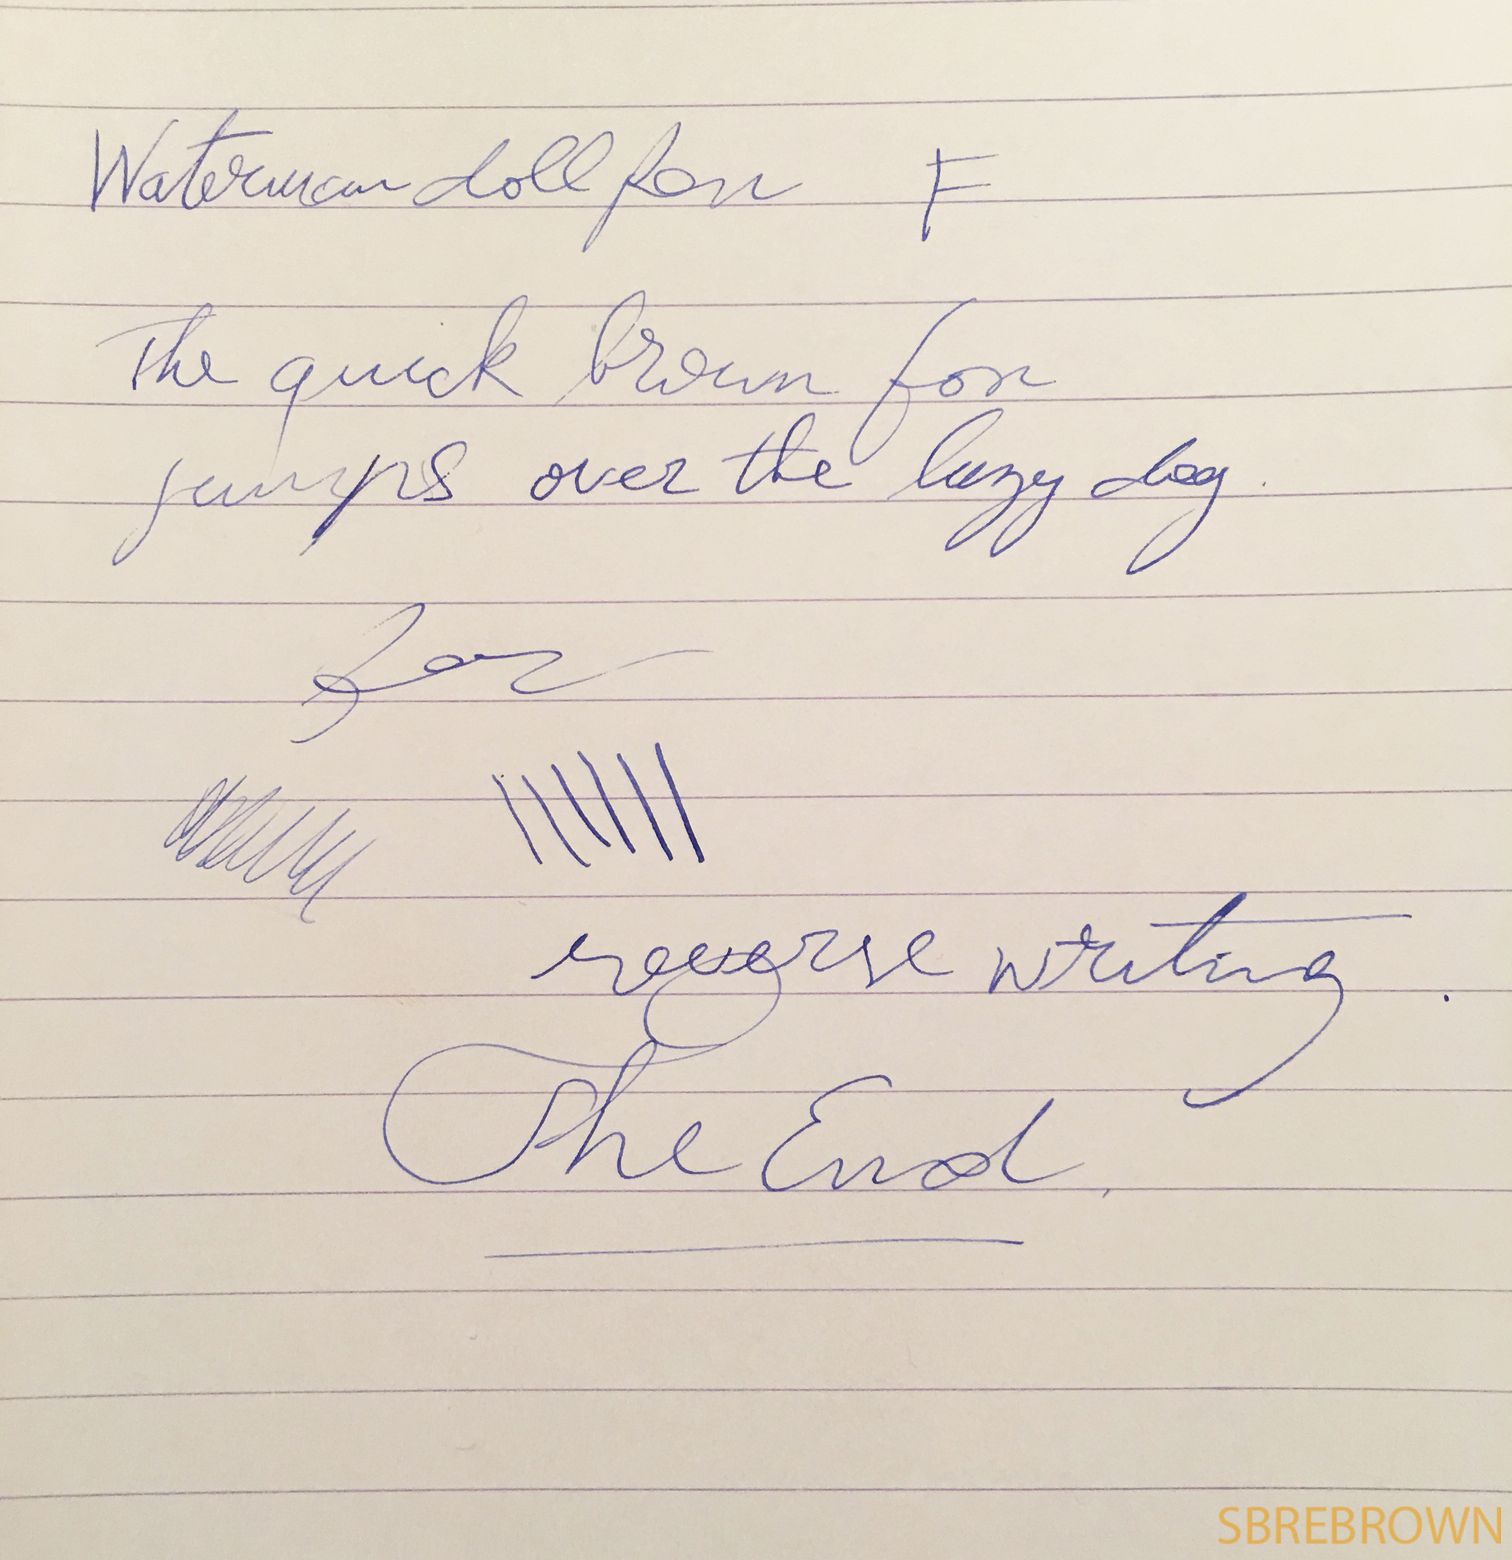 Waterman doll pen F
The quick brown fox
jumps over the lazy dog.
reverse writing.
The End.
SBREBROWN